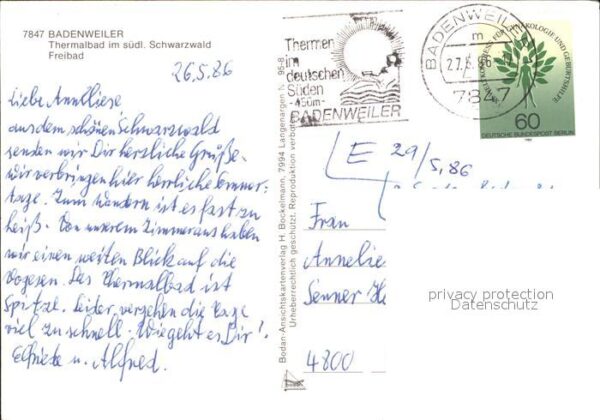 7847 BADENWEILER
Thermalbad im südl. Schwarzwald
Freibad
26.5.86
Liebe Anneliese
aus dem schönen Schwarzwald
senden wir Dir herzliche Grüße.
wir verbringen hier herrliche Sommer-
tage. Zum Wandern ist es fast zu
heiß. Von unserem Zimmer aus haben
wir einen weiten Blick auf die
Vogesen. Das Thermalbad ist
Spitze. Leider vergehen die Tage
viel zu schnell. Wie geht es Dir!
Elfriede u. Alfred.
Bodan-Ansichtskartenverlag H. Bockelmann, 7994 Langenargen N. 95-8
Urheberrechtlich geschützt. Reproduktion verboten
Thermen
im
deutschen
Süden
450m
BADENWEILER
BADENWEILER
m
27.5.86
7847
GYNÄKOLOGIE UND GEBURTSHILFE
60
DEUTSCHE BUNDESPOST BERLIN
E 29/5.86
Frau
Annelie
Senner He
4800
privacy protection
Datenschutz